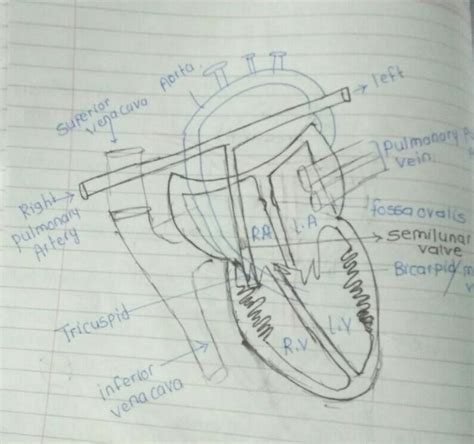 Aorta.
left
superior
venacava
Pulmonary
vein
Right
pulmonary
Artery
fossa ovalis
R.A
L.A
semilunar
valve
Bicarpid/
Tricuspid
L.V
R.V
inferior
venacava